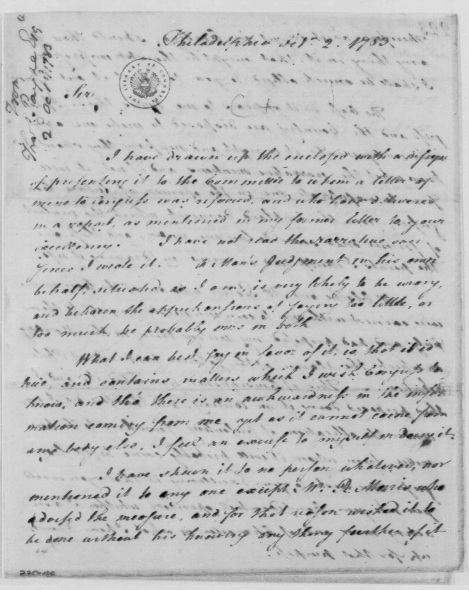 From
Thos. Payne Esq
2d Oct. 1783
Philadelphia Octr. 2. 1783
Sir
I have drawn up the enclosed with a design
of presenting it to the Committee to whom a letter of
mine to Congress was referred, and who have delivered
in a report, as mentioned in my former letter to your
Excellency. I have not read the narrative over
since I wrote it. A Man's Judgment in his own
behalf, situated as I am, is very likely to be wrong,
and between the apprehensions of saying too little, or
too much he probably errs in both
What I can best say in favor of it, is that it is
true, and contains matters which I wish Congress to
know, and tho there is an awkwardness in the infor-
mation coming from me, yet as it cannot come from
any body else, I feel an excuse to myself in doing it.
I have shewn it to no person whatever, nor
mentioned it to any one except Mr. R. Morris who
advised the measure, and for that reason wished it to
be done without his knowing any thing further of it